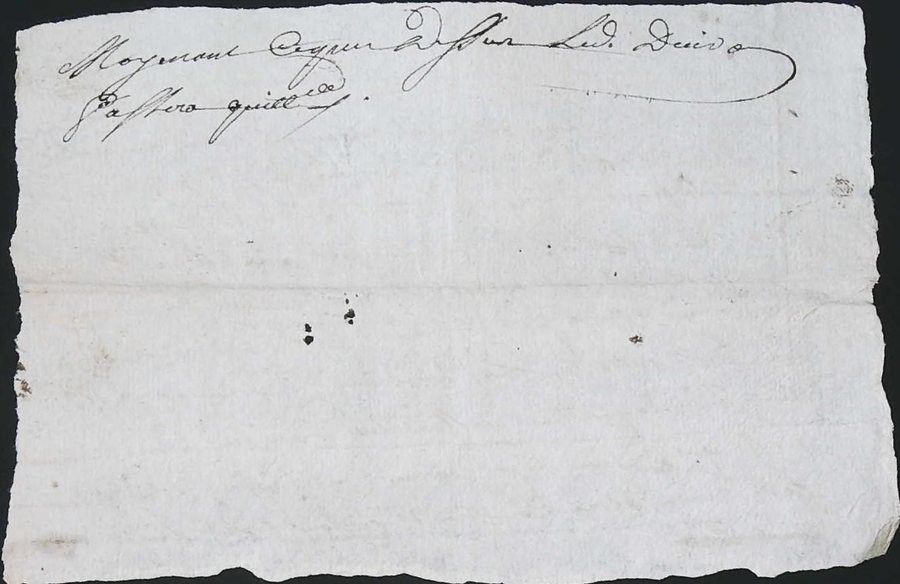 Moyenant ce que dessus led. Deiva
Passera quille